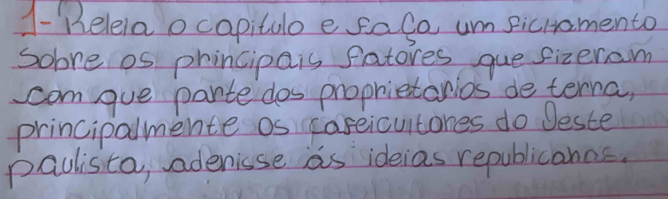 1- Releia o capitulo e faça um fichamento
sobre os principais fatores que fizeram
com que parte dos proprietarios de terra,
principalmente os cafeicultores do Oeste
paulista, aderisse ás ideias republicanas.